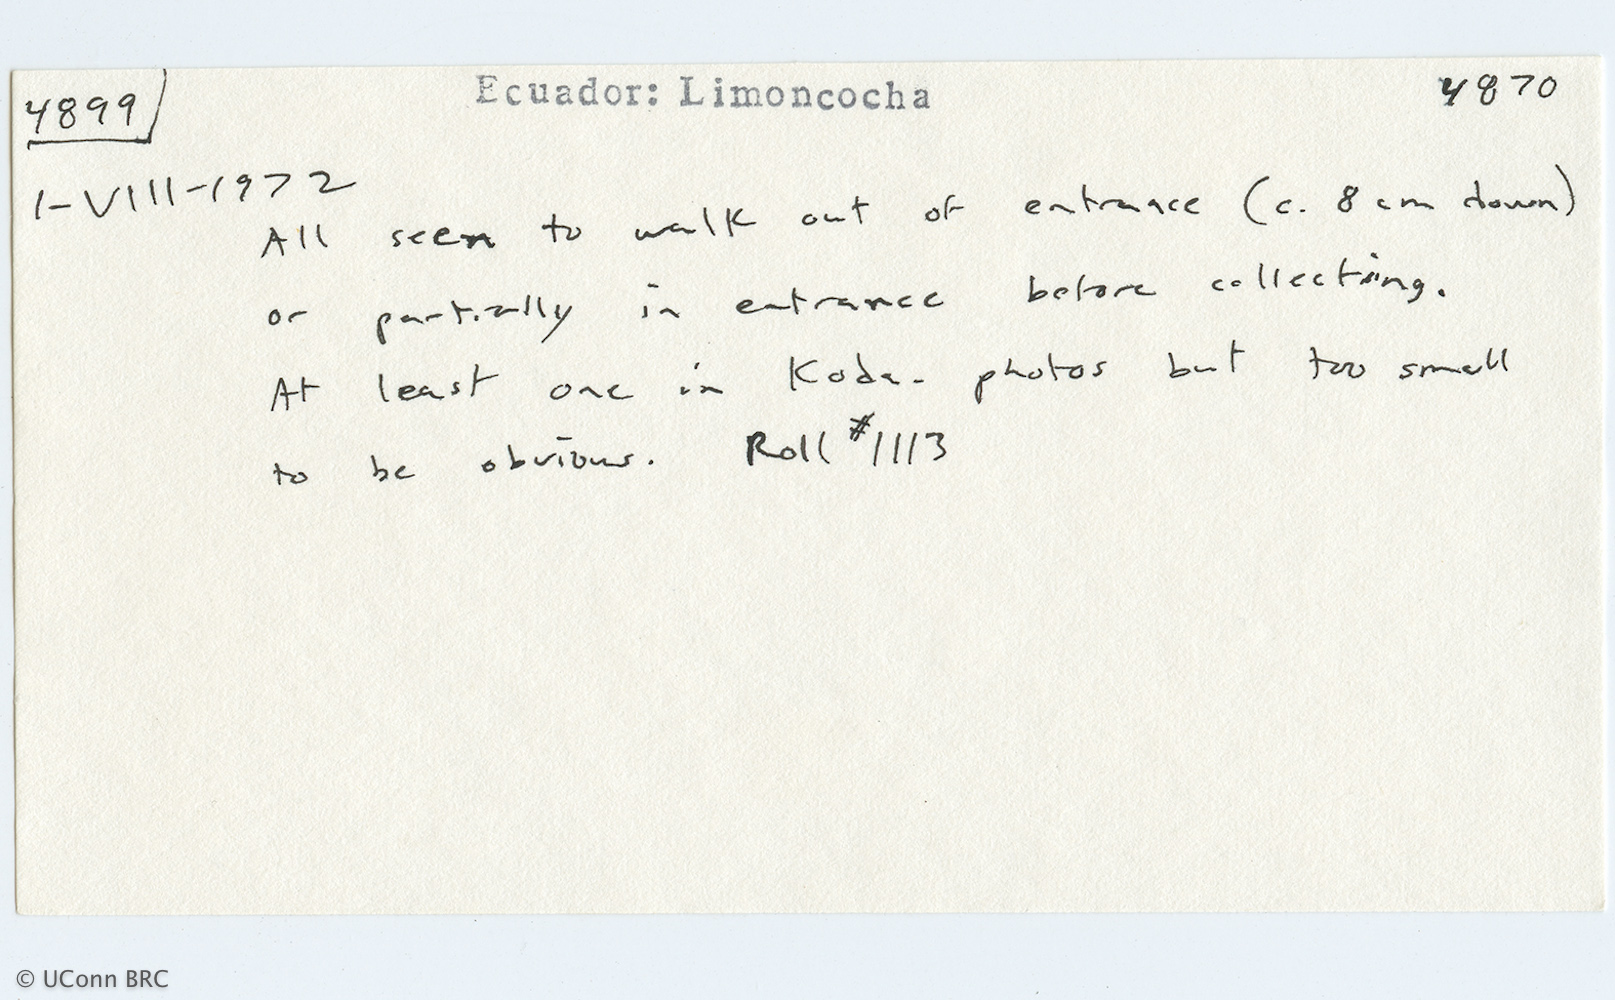 4899 Ecuador: Limoncocha 4870
1-VIII-1972
All seen to walk out of entrance (c. 8 cm down)
or partially in entrance before collecting.
At least one in Koda. photos but too small
to be obvious. Roll #1113
© UConn BRC